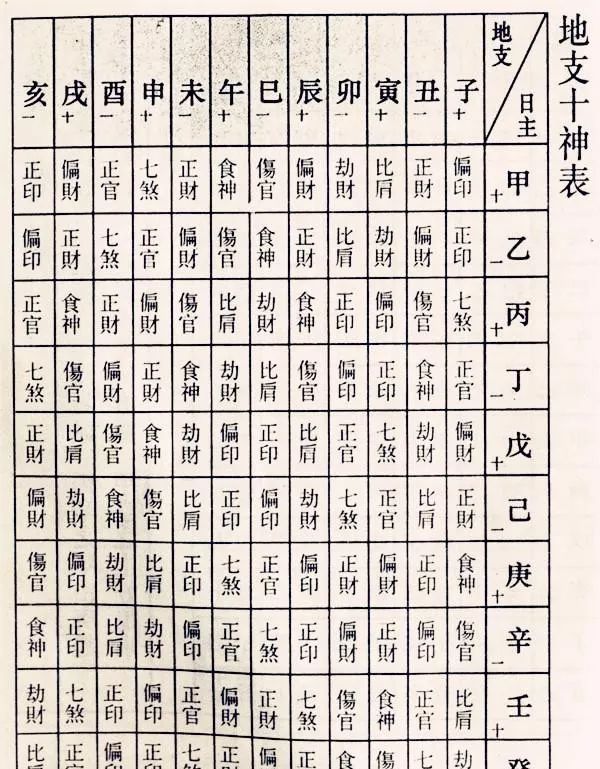 地支十神表
地支 日主 子+ 丑一 寅+ 卯一 辰+ 巳一 午+ 未一 申+ 酉一 戌+ 亥一
甲+ 偏印 正財 比肩 劫財 偏財 傷官 食神 正財 七煞 正官 偏財 正印
乙一 正印 偏財 劫財 比肩 正財 食神 傷官 偏財 正官 七煞 正財 偏印
丙+ 七煞 傷官 偏印 正印 食神 劫財 比肩 傷官 偏財 正財 食神 正官
丁一 正官 食神 正印 偏印 傷官 比肩 劫財 食神 正財 偏財 傷官 七煞
戊+ 偏財 劫財 七煞 正官 比肩 正印 偏印 劫財 食神 傷官 比肩 正財
己一 正財 比肩 正官 七煞 劫財 偏印 正印 比肩 傷官 食神 劫財 偏財
庚+ 食神 正印 偏財 正財 偏印 正官 七煞 正印 比肩 劫財 偏印 傷官
辛一 傷官 偏印 正財 偏財 正印 七煞 正官 偏印 劫財 比肩 正印 食神
壬+ 比肩 正官 食神 傷官 七煞 正財 偏財 正官 偏印 正印 七煞 劫財
癸 劫 七 傷 食 正 偏 正 七 正 偏 正 比